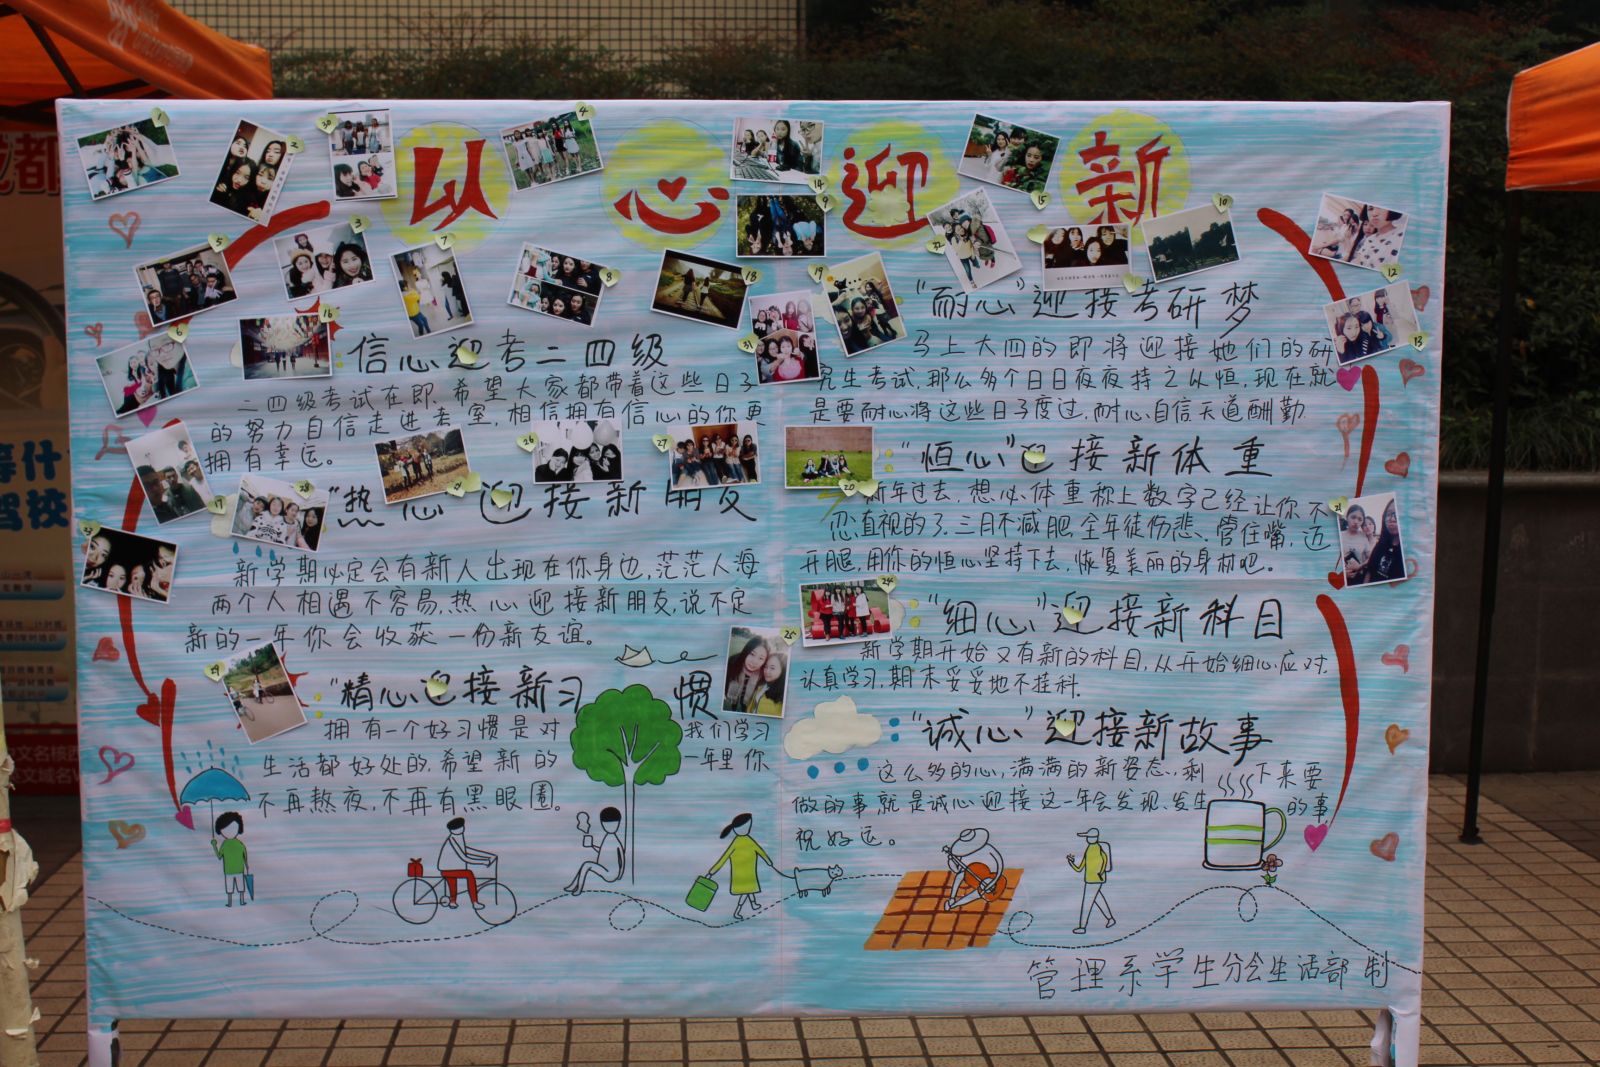 以心迎新
:信心迎考二四级
二四级考试在即、希望大家都带着这些日子
的努力自信走进考室,相信拥有信心的你更
拥有幸运。
"热心迎接新朋友
新学期必定会有新人出现在你身也,茫茫人海
两个人相遇不容易,热心迎接新朋友,说不定
新的一年你会收获一份新友谊。
"精心迎接新习惯
拥有一个好习惯是对我们学习
生活都好处的,希望新的一年里你
不再熬夜,不再有黑眼圈。
"耐心"迎接考研梦
马上大四的即将迎接她们的研
究生考试,那么多个日日夜夜持之以恒,现在就
是要耐心将这些日子度过,耐心自信天道酬勤
:"恒心"迎接新体重
新年过去,想必体重称上数字已经让你不
忍直视的了,三月不减肥,全年徒伤悲、管住嘴,迈
开腿,用你的恒心坚持下去,恢复美丽的身材吧。
:"细心"迎接新科目
新学期开始又有新的科目,从开始细心应对,
认真学习,期末妥妥地不挂科.
:"诚心"迎接新故事
这么多的心,满满的新姿态.,剩下来要
做的事就是诚心迎接这一年会发现、发生的事,
祝好运。
管理系学生分会生活部制